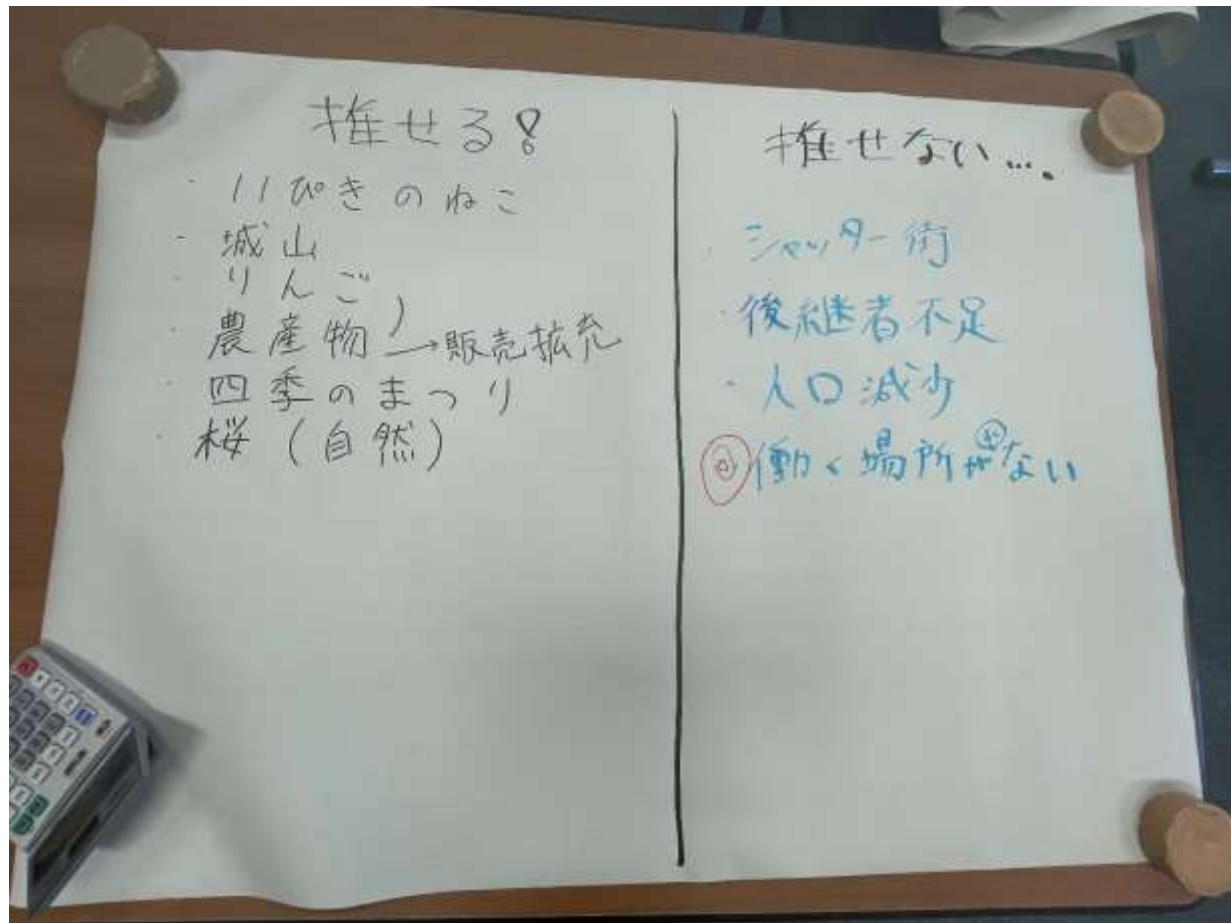 推せる!
・11ぴきのねこ
・城山
・りんご
・農産物 → 販売拡充
・四季のまつり
・桜(自然)
推せない….
・シャッター街
・後継者不足
・人口減少
◎働く場所がない